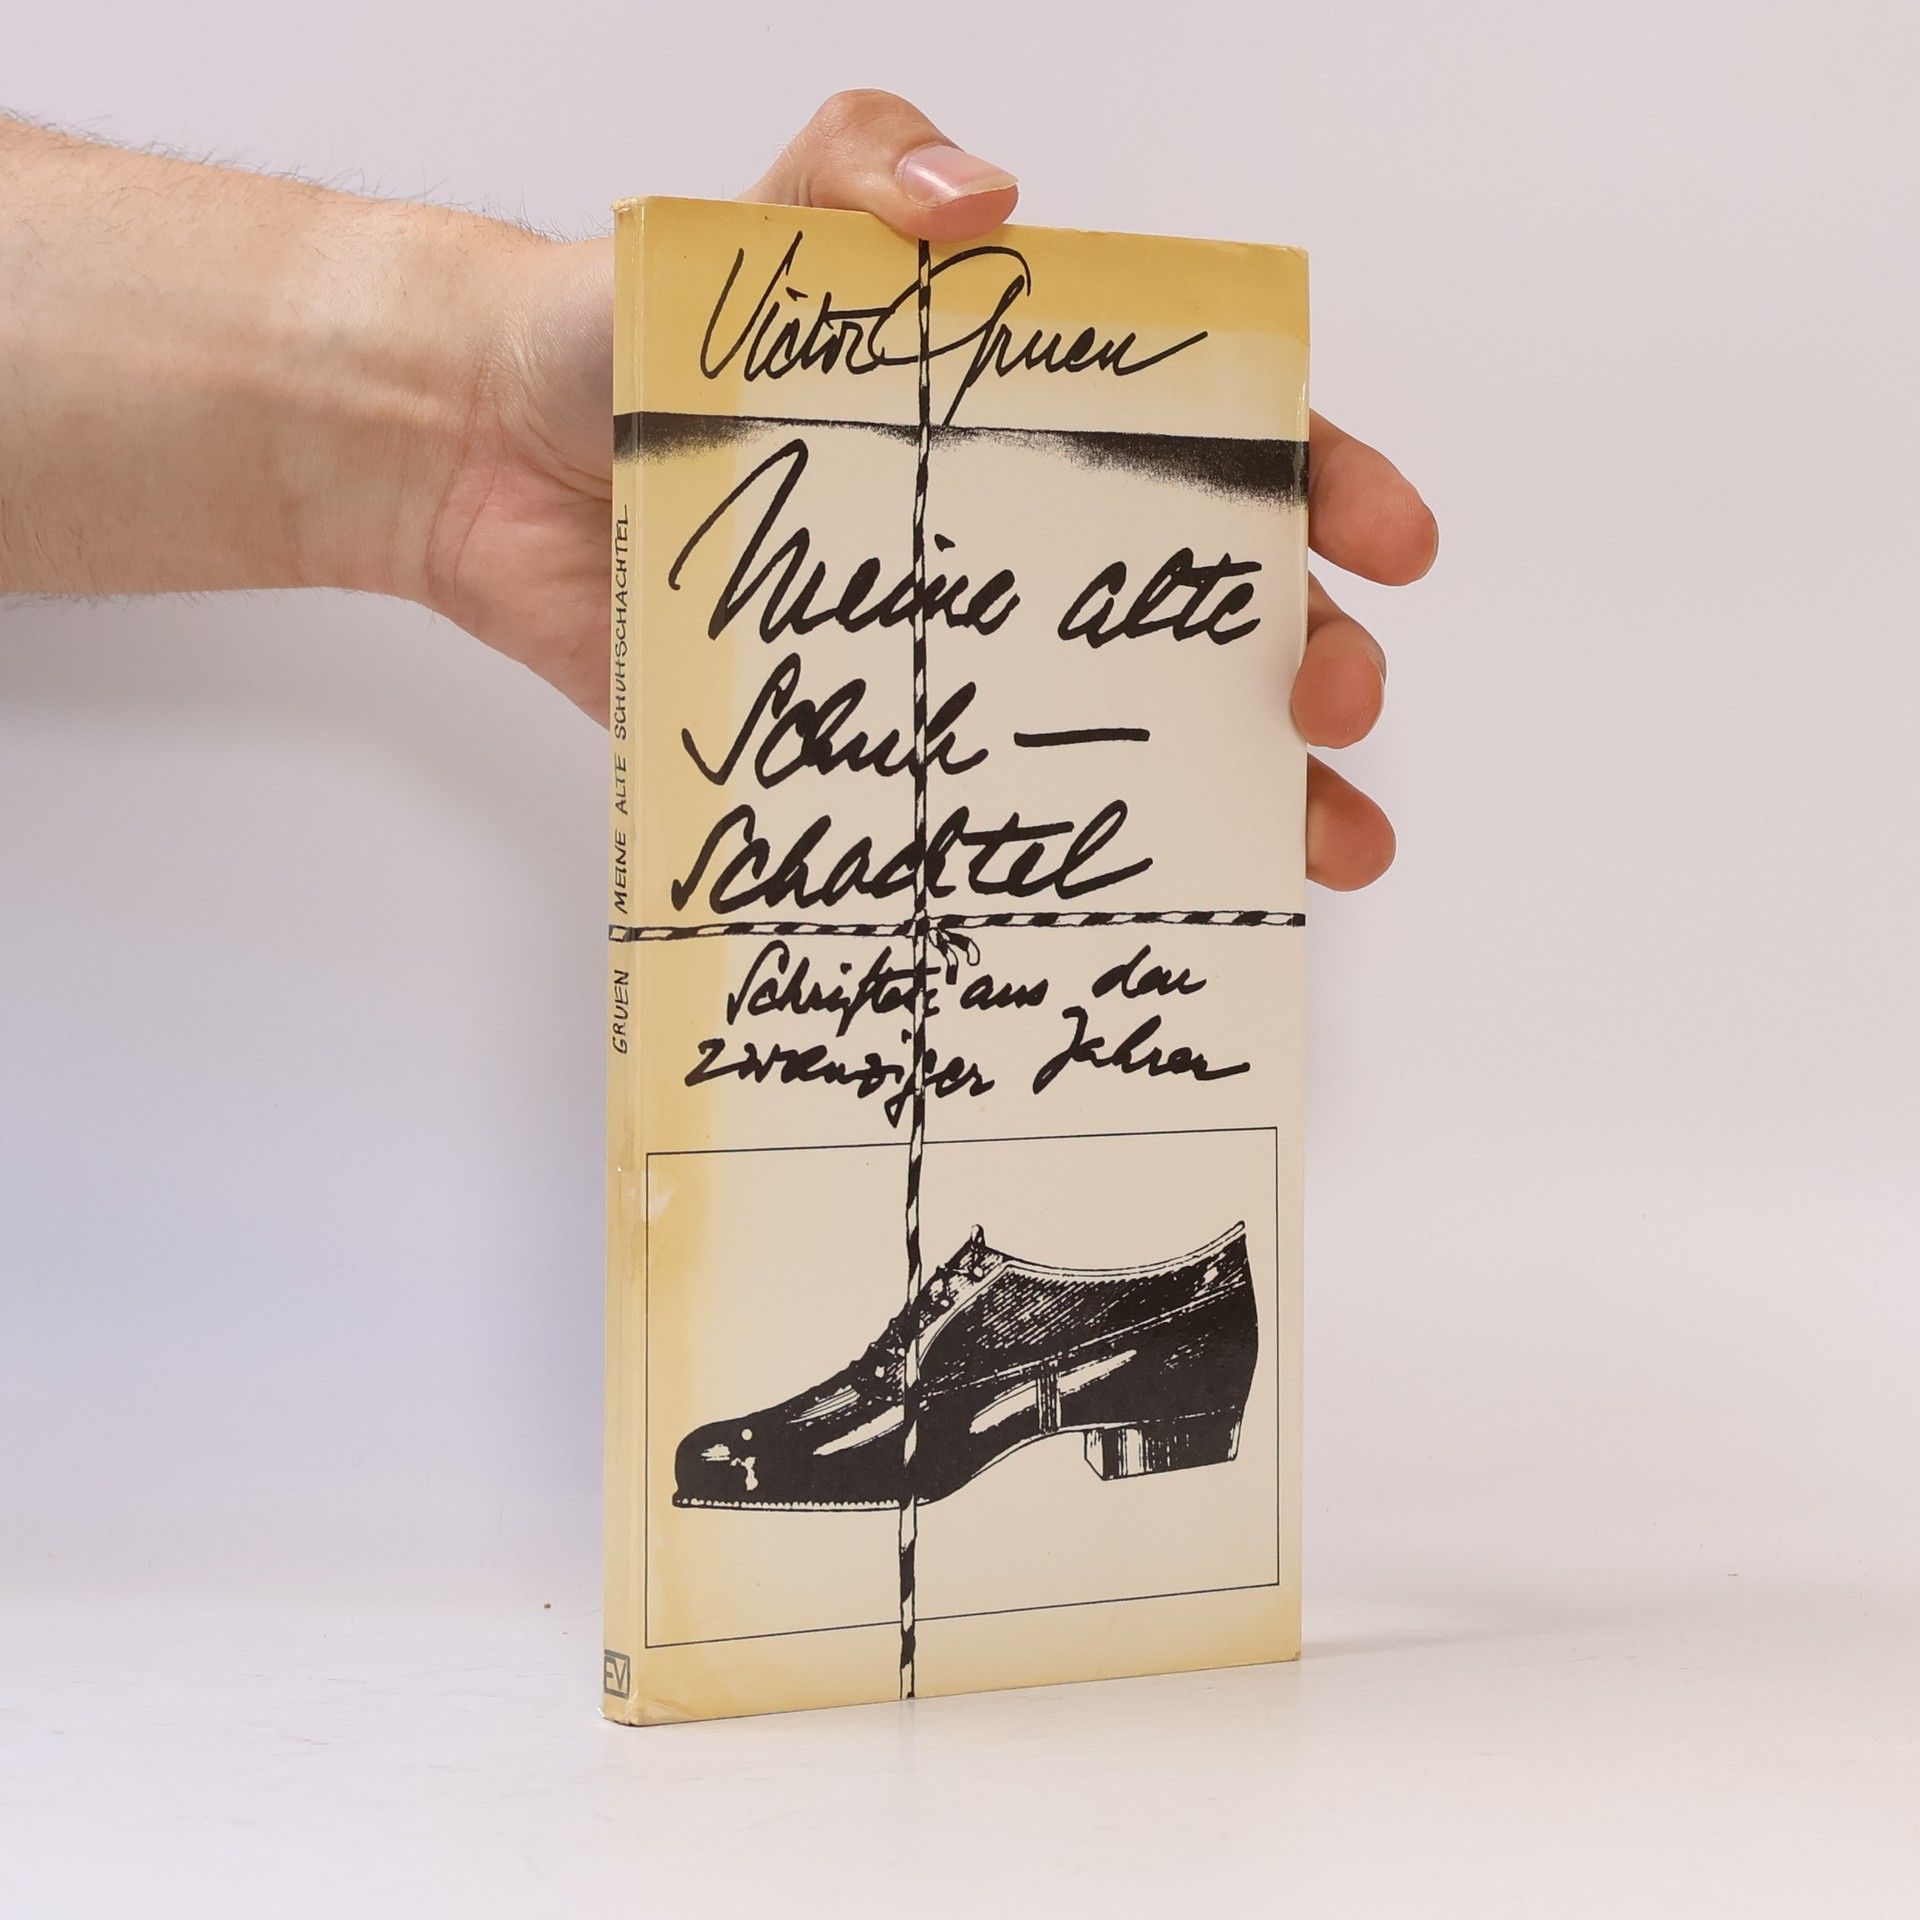 Victor Gruen
Meine alte
Schuh –
schachtel
Schriften aus den
zwanziger Jahren
GRUEN MEINE ALTE SCHUHSCHACHTEL
EV